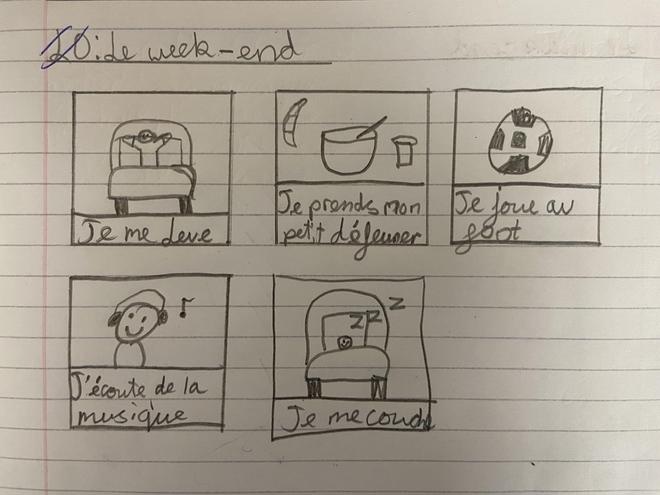 LO: Le week-end
Je me leve
Je prends mon
petit déjeuner
Je joue au
foot
J'écoute de la
musique
Je me couche
z z z